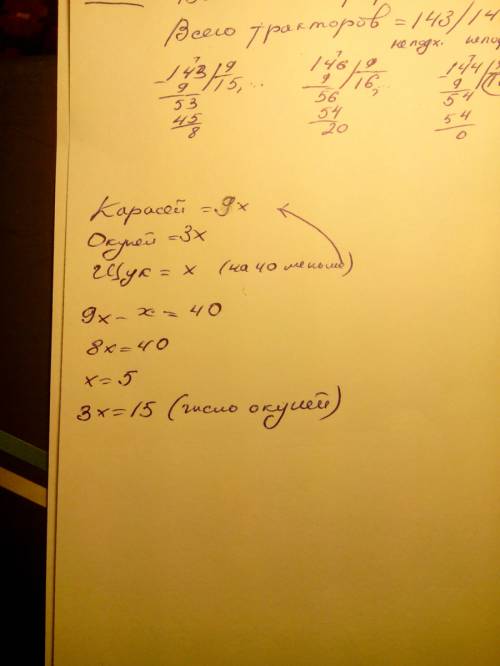 Всего тракторов = 143/14
не подх.
143 | 9
9 15,...
53
45
8
146 | 9
9 16,
56
54
20
144
9
54
54
0
Карасей = 9x
Окуней = 3x
Щук = x (на 40 меньше)
9x - x = 40
8x = 40
x = 5
3x = 15 (число окуней)